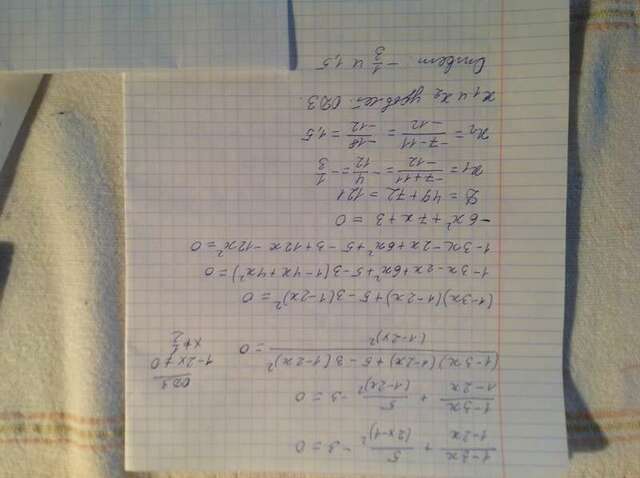 (1-3x)/(1-2x) + 5/(2x-1)² - 3 = 0
(1-3x)/(1-2x) + 5/(1-2x)² - 3 = 0
((1-3x)(1-2x) + 5 - 3(1-2x)²)/(1-2x)² = 0
ОДЗ
1-2x ≠ 0
x ≠ 1/2
(1-3x)(1-2x) + 5 - 3(1-2x)² = 0
1-3x-2x+6x²+5-3(1-4x+4x²) = 0
1-3x-2x+6x²+5-3+12x-12x² = 0
-6x²+7x+3 = 0
D = 49+72 = 121
x₁ = (-7+11)/(-12) = -4/12 = -1/3
x₂ = (-7-11)/(-12) = (-18)/(-12) = 1,5
x₁ и x₂ удовлет. ОДЗ.
Ответ: -1/3 и 1,5